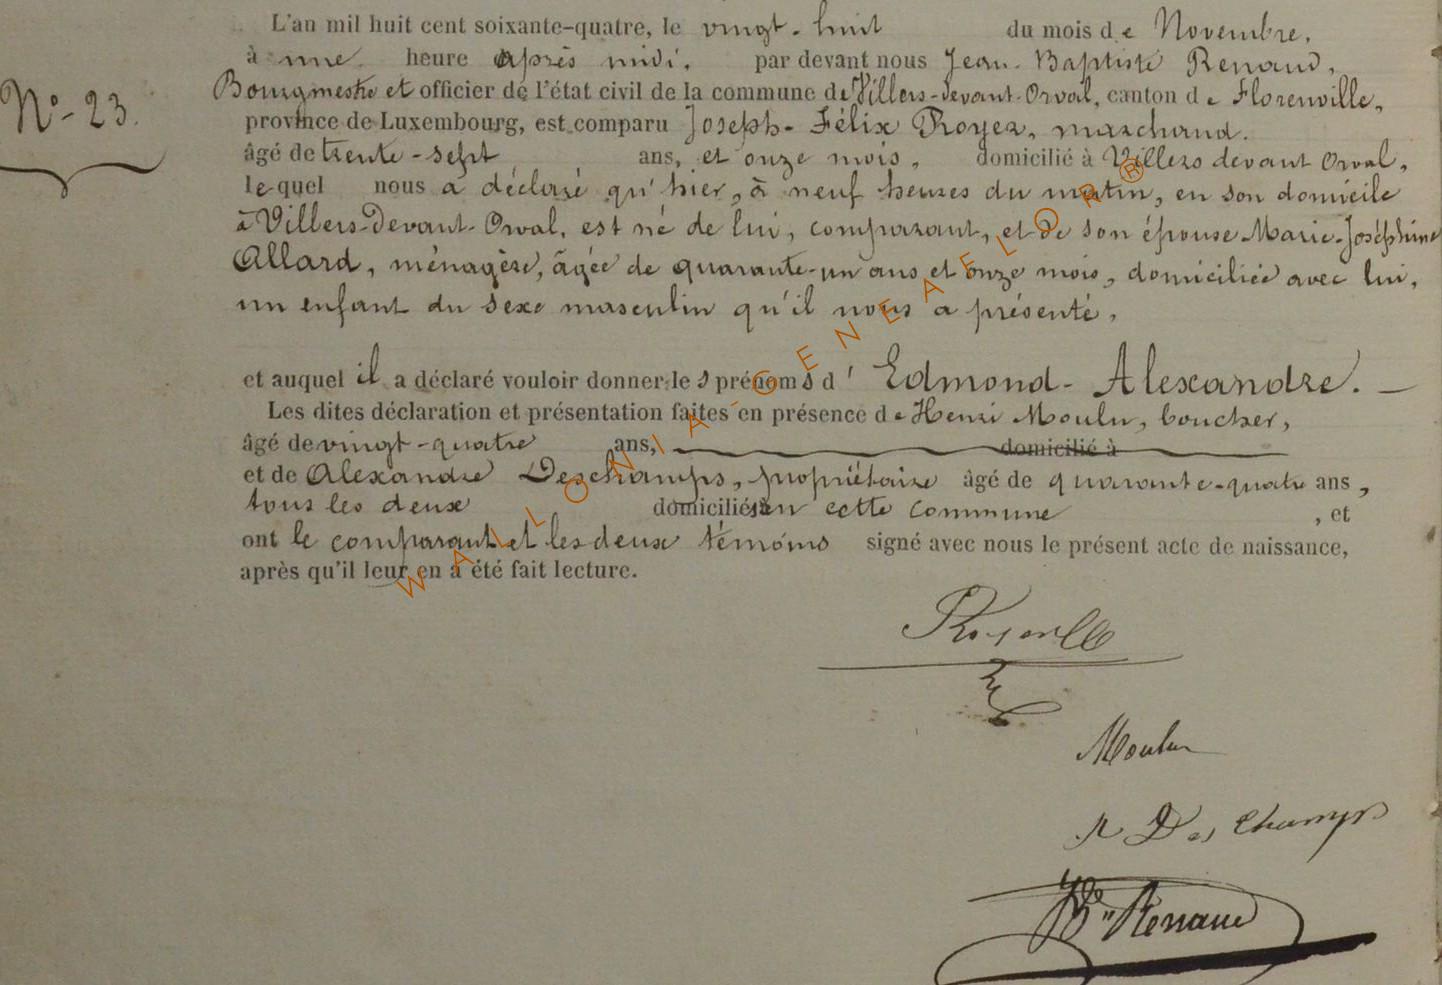 L'an mil huit cent soixante-quatre, le vingt-huit du mois de Novembre,
à une heure après midi, par devant nous Jean-Baptiste Renaud,
Bourgmestre et officier de l'état civil de la commune de Villers-devant-Orval, canton de Florenville,
N°-23.
province de Luxembourg, est comparu Joseph-Félix Royer, marchand.
âgé de trente-sept ans, et onze mois, domicilié à Villers devant Orval,
lequel nous a déclaré qu'hier, à neuf heures du matin, en son domicile
à Villers-devant-Orval, est né de lui, comparant, et de son épouse Marie-Joséphine
Allard, ménagère, âgée de quarante-un ans et onze mois, domiciliée avec lui,
un enfant du sexe masculin qu'il nous a présenté,
et auquel il a déclaré vouloir donner les prénoms d'Edmond-Alexandre. —
Les dites déclaration et présentation faites en présence de Henri Moulu, boucher,
âgé de vingt-quatre ans, domicilié à
et de Alexandre Deschamps, propriétaire âgé de quarante-quatre ans,
tous les deux domiciliés en cette commune , et
ont le comparant et les deux témoins signé avec nous le présent acte de naissance,
après qu'il leur en a été fait lecture.
Moulu
A Deschamps
JB Renaud
WALLONIA-GENEAELOR®